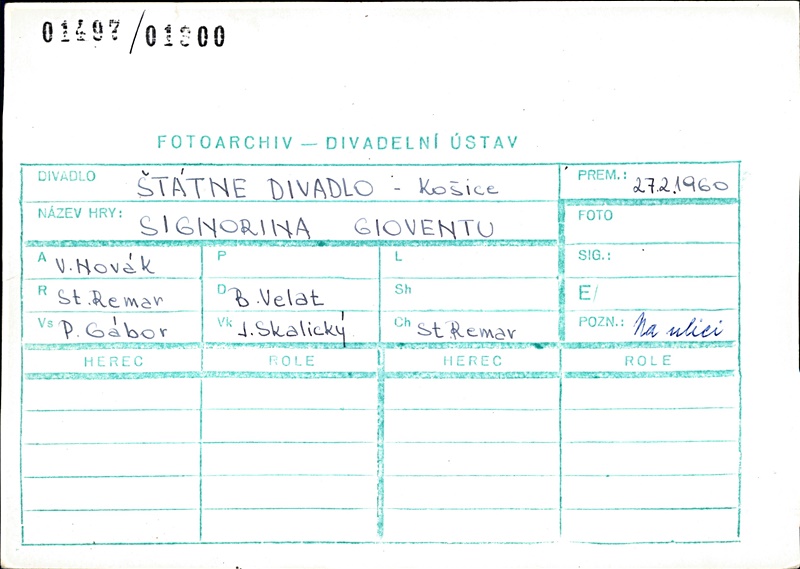 01497/01800
FOTOARCHIV — DIVADELNÍ ÚSTAV
DIVADLO ŠTÁTNE DIVADLO - Košice PREM.: 27.2.1960
NÁZEV HRY: SIGNORINA GIOVENTU FOTO
A V. Novák P L SIG.:
R St. Remar D B. Velat Sh E/
Vs P. Gábor Vk J. Skalický Ch St. Remar POZN.: Na ulici
HEREC ROLE HEREC ROLE